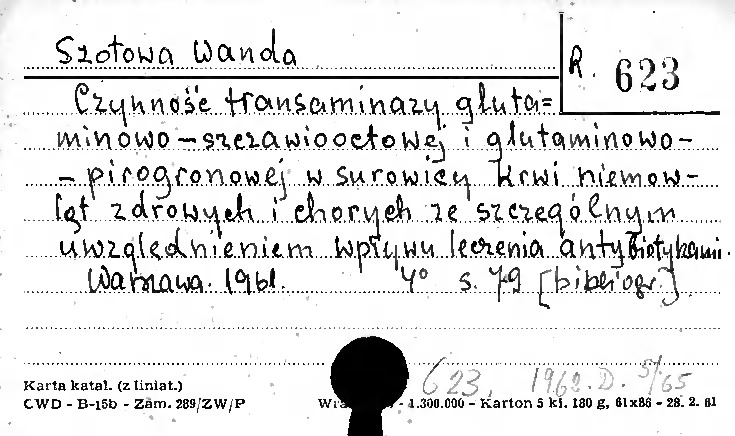 Szotowa Wanda
R. 623
Czynność transaminazy gluta=
minowo - szczawiooctowej i glutaminowo -
- pirogronowej w surowicy krwi niemow-
ląt zdrowych i chorych ze szczególnym
uwzględnieniem wpływu leczenia antybiotykami.
Warszawa. 1961. 4° s. 79 [bibliogr.]
623, 1962. D. 5/65
Karta katal. (z liniat.)
CWD - B-15b - Zam. 289/ZW/P - 1.300.000 - Karton 5 kl. 180 g, 61x86 - 28. 2. 61